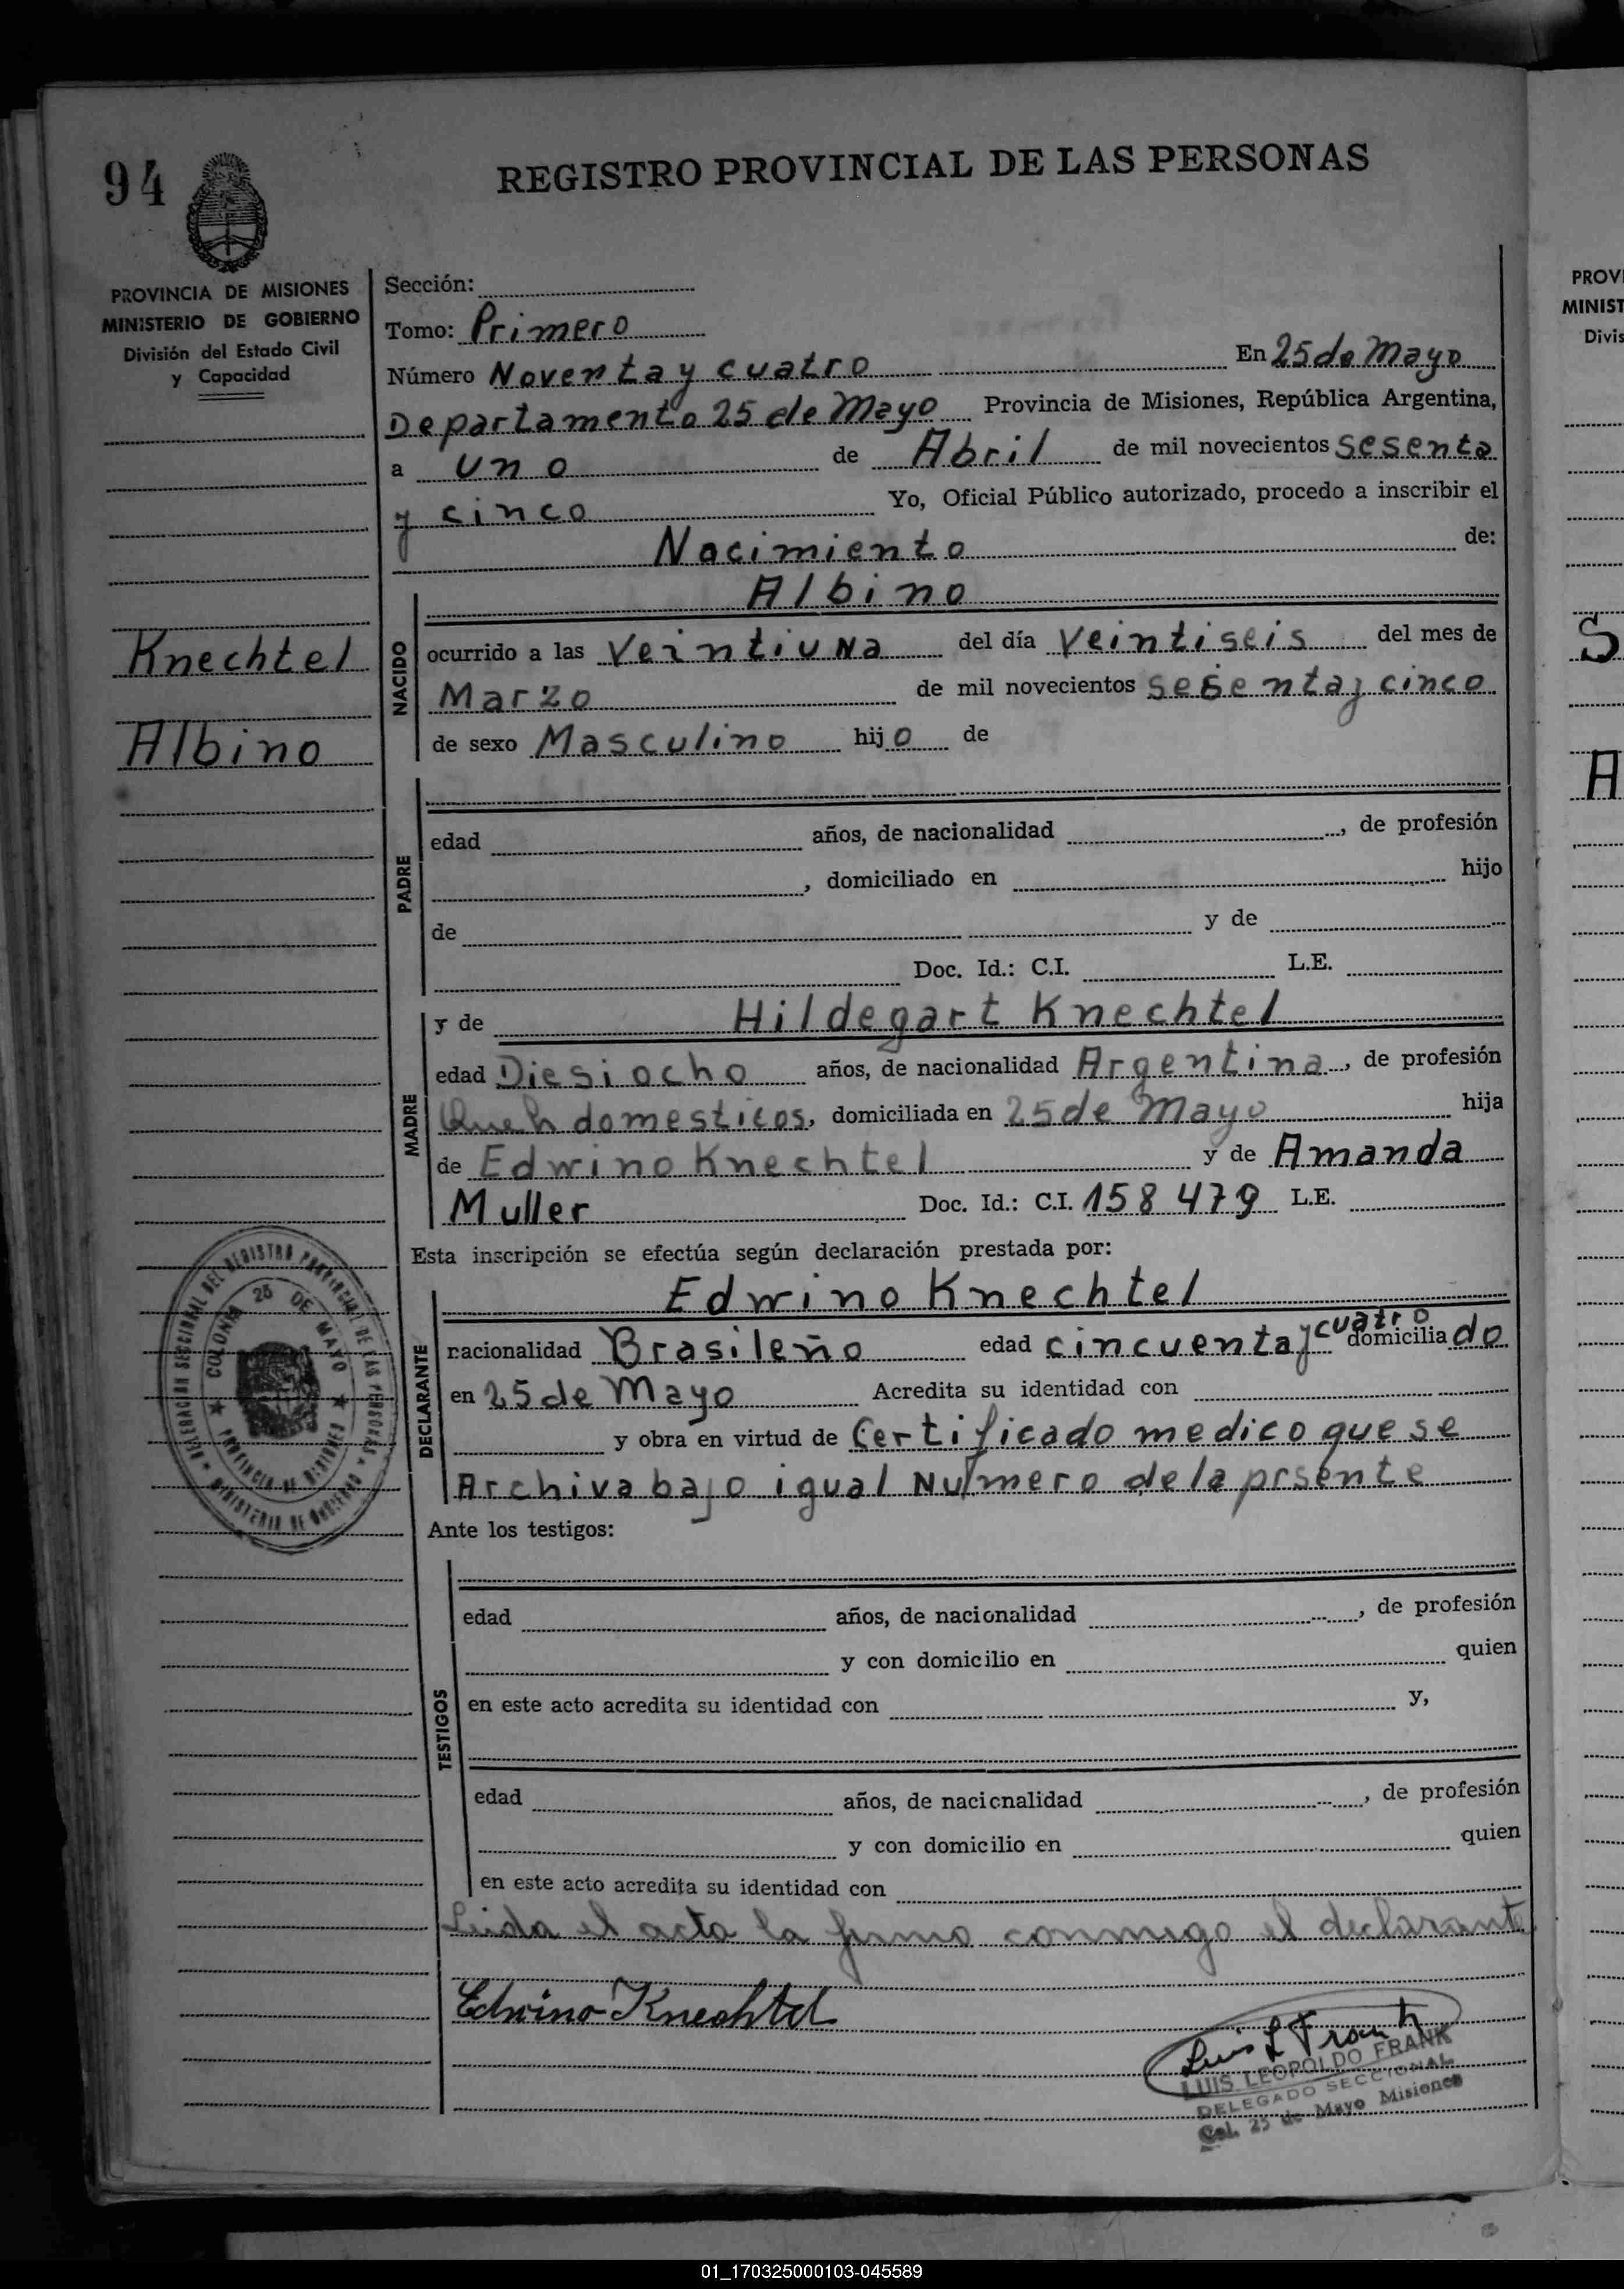 94
REGISTRO PROVINCIAL DE LAS PERSONAS
PROVINCIA DE MISIONES
MINISTERIO DE GOBIERNO
División del Estado Civil
y Capacidad
Knechtel
Albino
Sección:
Tomo: Primero
Número Noventa y cuatro En 25 de Mayo
Departamento 25 de Mayo Provincia de Misiones, República Argentina,
a uno de Abril de mil novecientos sesenta
y cinco Yo, Oficial Público autorizado, procedo a inscribir el
Nacimiento de:
Albino
NACIDO
ocurrido a las Veintiuna del día Veintiseis del mes de
Marzo de mil novecientos sesenta y cinco
de sexo Masculino hijo de
PADRE
edad años, de nacionalidad , de profesión
, domiciliado en hijo
de y de
Doc. Id.: C.I. L.E.
MADRE
y de Hildegart Knechtel
edad Diesiocho años, de nacionalidad Argentina, de profesión
domesticos, domiciliada en 25 de Mayo hija
de Edwino Knechtel y de Amanda
Muller Doc. Id.: C.I. 158479 L.E.
Esta inscripción se efectúa según declaración prestada por:
DECLARANTE
Edwino Knechtel
nacionalidad Brasileño edad cincuenta y cuatro domiciliado
en 25 de Mayo Acredita su identidad con
y obra en virtud de Certificado medico que se
Archiva bajo igual Numero de la prsente
Ante los testigos:
TESTIGOS
edad años, de nacionalidad , de profesión
y con domicilio en quien
en este acto acredita su identidad con y,
edad años, de nacicnalidad , de profesión
y con domicilio en quien
en este acto acredita su identidad con
Leida el acta la firma conmigo el declarante
Edwino Knechtel
Luis L Frank
LUIS LEOPOLDO FRANK
DELEGADO SECCIONAL
Col. 25 de Mayo Misiones
DELEGACION SECCIONAL DEL REGISTRO PROVINCIAL DE LAS PERSONAS
MINISTERIO DE GOBIERNO
COLONIA 25 DE MAYO
PROVINCIA DE MISIONES
PROV
MINIST
Divis
S
A
01_170325000103-045589